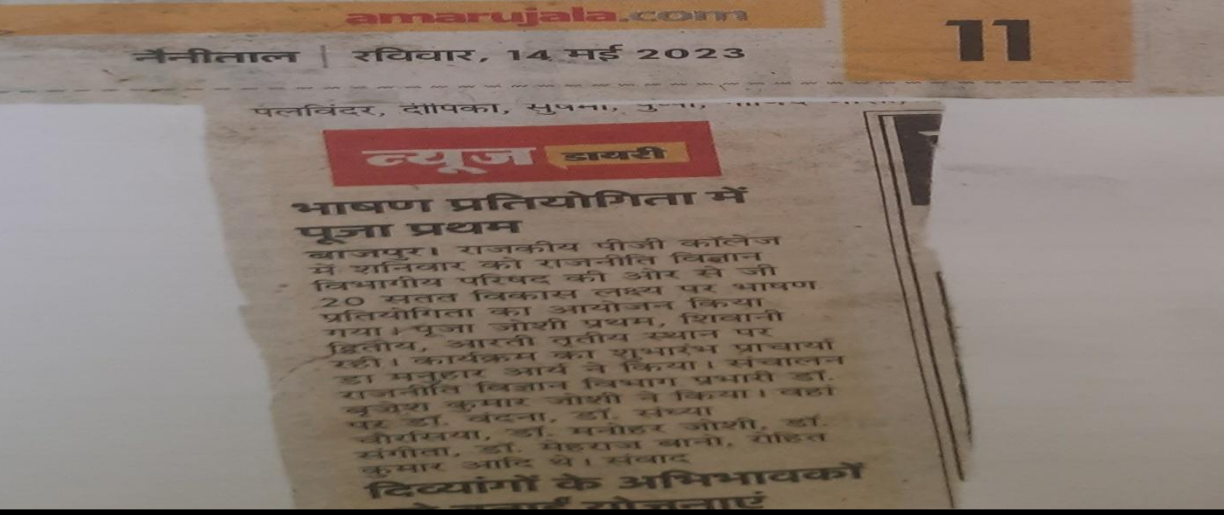 amarujala.com
11
नैनीताल | रविवार, 14 मई 2023
पलविंदर, दीपिका, सुषमा,
न्यूज डायरी
भाषण प्रतियोगिता में
पूजा प्रथम
बाजपुर। राजकीय पीजी कॉलेज
में शनिवार को राजनीति विज्ञान
विभागीय परिषद की ओर से जी
20 सतत विकास लक्ष्य पर भाषण
प्रतियोगिता का आयोजन किया
गया। पूजा जोशी प्रथम, शिवानी
द्वितीय, आरती तृतीय स्थान पर
रही। कार्यक्रम का शुभारंभ प्राचार्या
डा मनुहार आर्य ने किया। संचालन
राजनीति विज्ञान विभाग प्रभारी डॉ.
बृजेश कुमार जोशी ने किया। वहां
पर डॉ. वंदना, डॉ. संध्या
चौरसिया, डॉ. मनोहर जोशी, डॉ.
संगीता, डॉ. मेहराज बानो, रोहित
कुमार आदि थे। संवाद
दिव्यांगों के अभिभावकों
योजनाएं